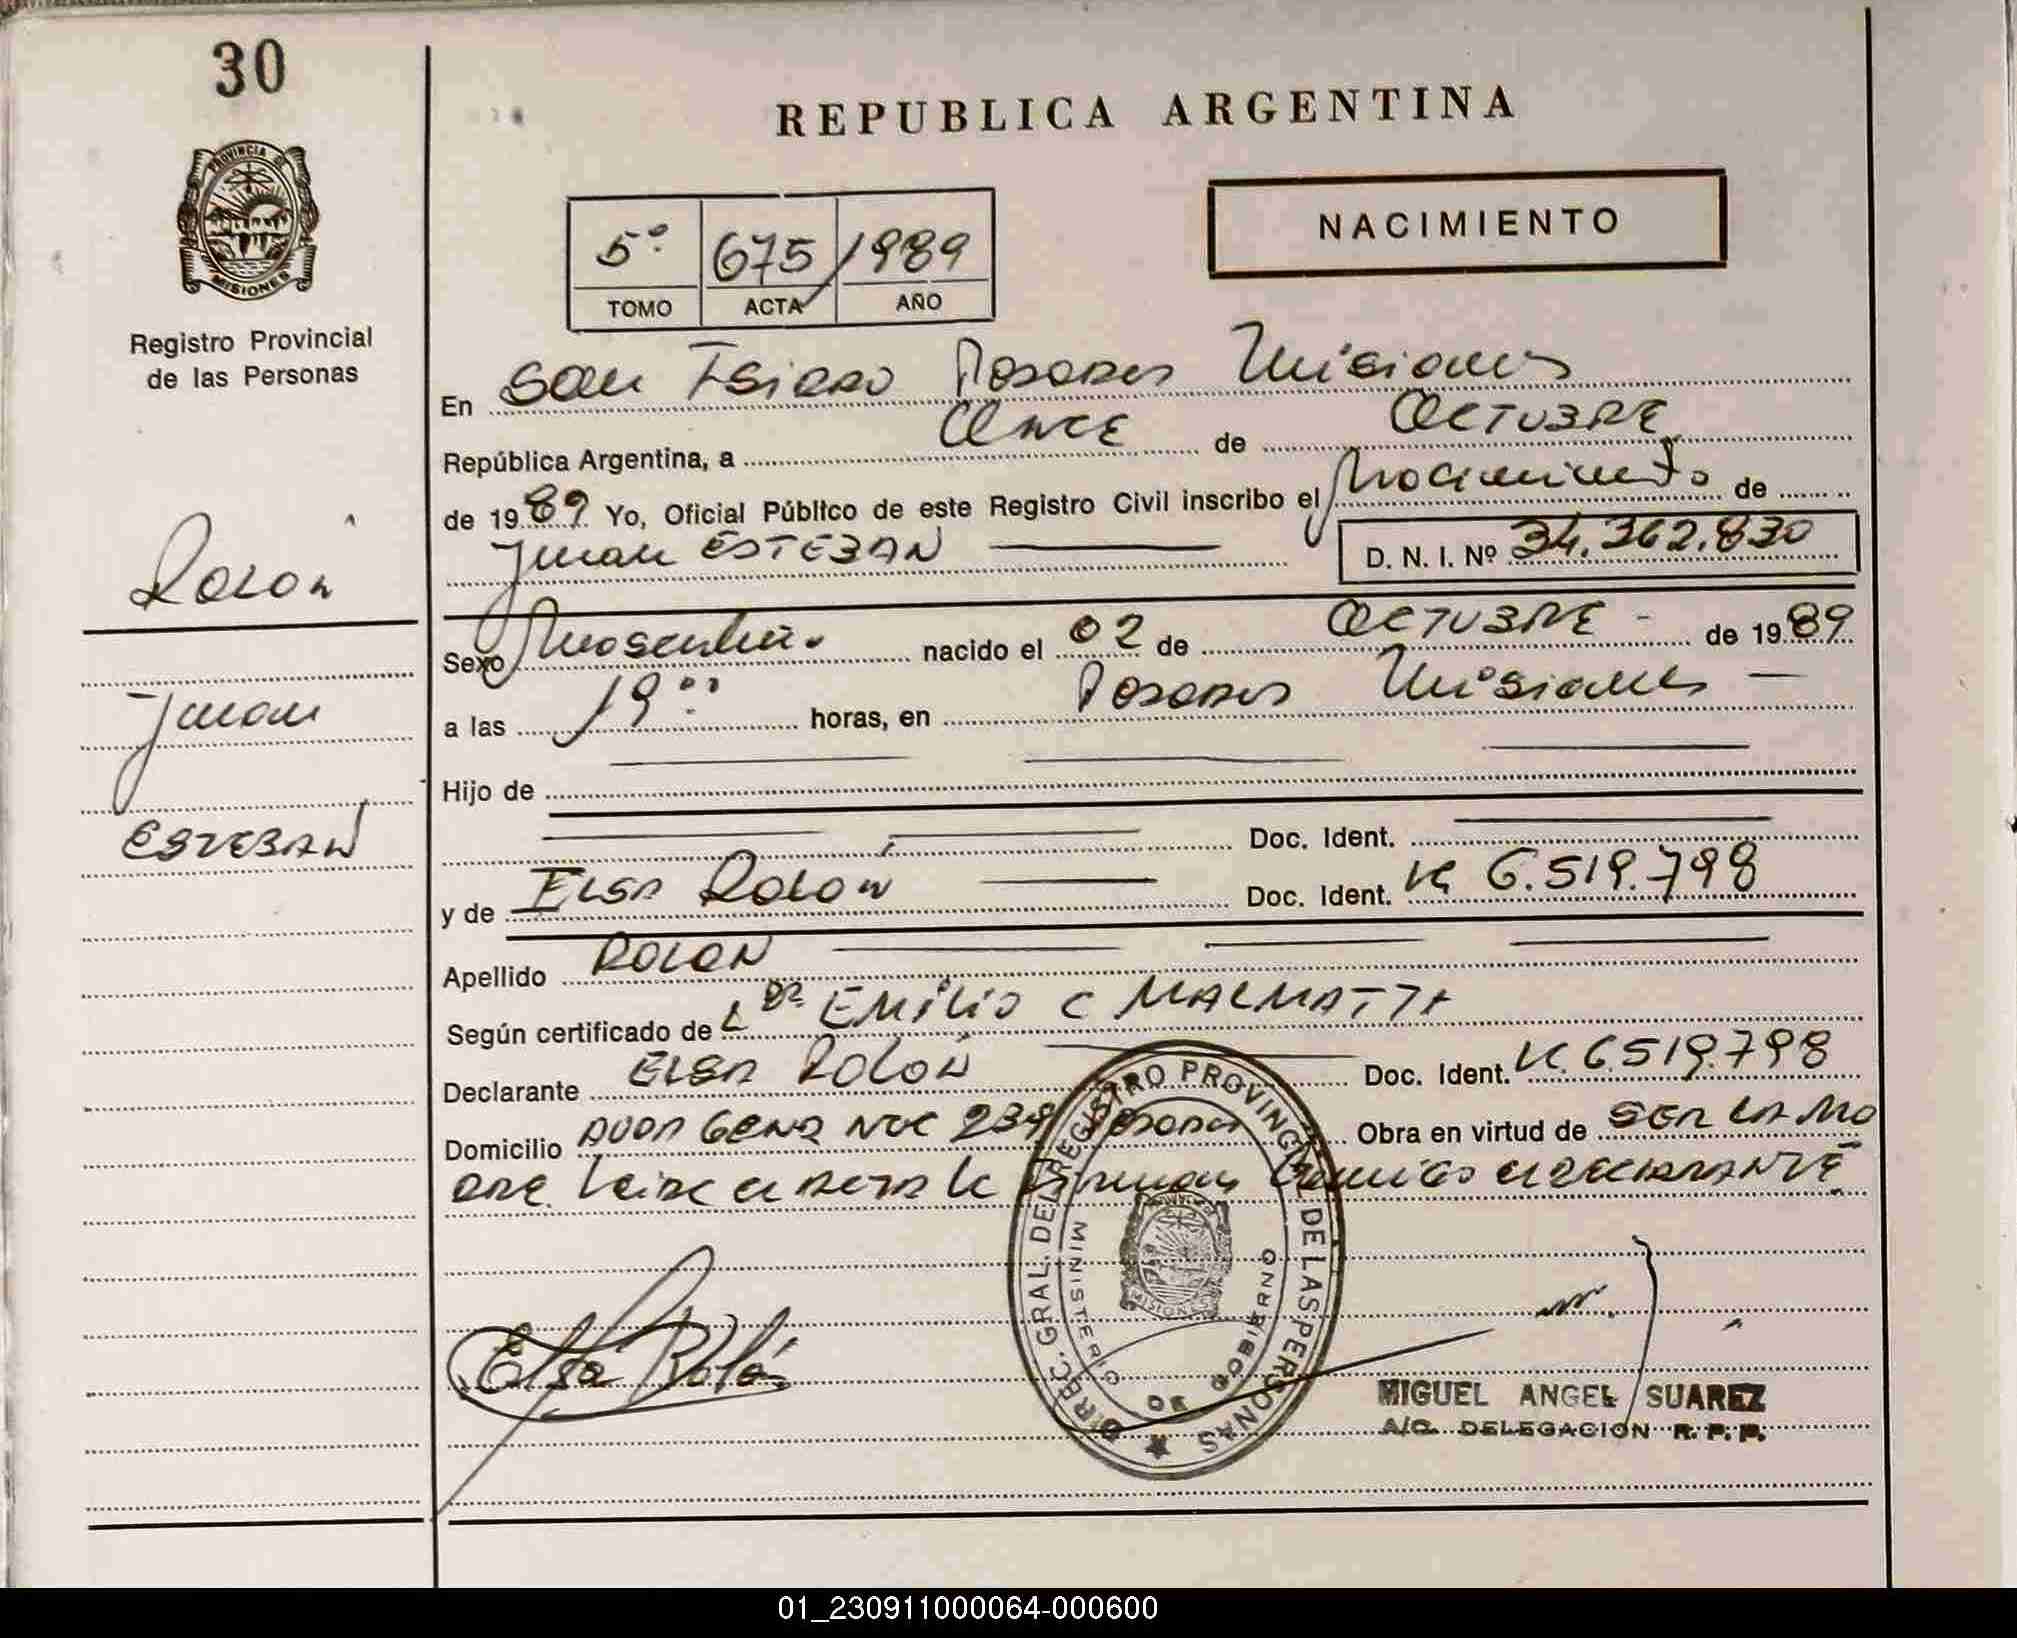 30
PROVINCIA DE
MISIONES
Registro Provincial
de las Personas
Rolón
Juan
ESTEBAN
REPUBLICA ARGENTINA
NACIMIENTO
5º 675/1989
TOMO ACTA AÑO
En San Isidro Posadas Misiones
República Argentina, a Once de OCTUBRE
de 1989 Yo, Oficial Público de este Registro Civil inscribo el Nacimiento de
Juan ESTEBAN D. N. I. Nº 34.362.830
Sexo Masculino nacido el 02 de OCTUBRE - de 1989
a las 19 horas, en Posadas Misiones —
Hijo de
Doc. Ident.
y de Elsa Rolón Doc. Ident. 6.519.798
Apellido ROLON
Según certificado de L DR EMILIO C MALMATTA
Declarante ELSA ROLON Doc. Ident. 6.519.798
Domicilio Posadas Obra en virtud de SER LA MA
DRE. Leida el Acta la Firman Conmigo el DECLARANTE
Elsa Rolón
DIREC. GRAL. DEL REGISTRO PROVINCIAL DE LAS PERSONAS
MINISTERIO DE GOBIERNO
MISIONES
MIGUEL ANGEL SUAREZ
A/C. DELEGACION R. P. P.
01_230911000064-000600